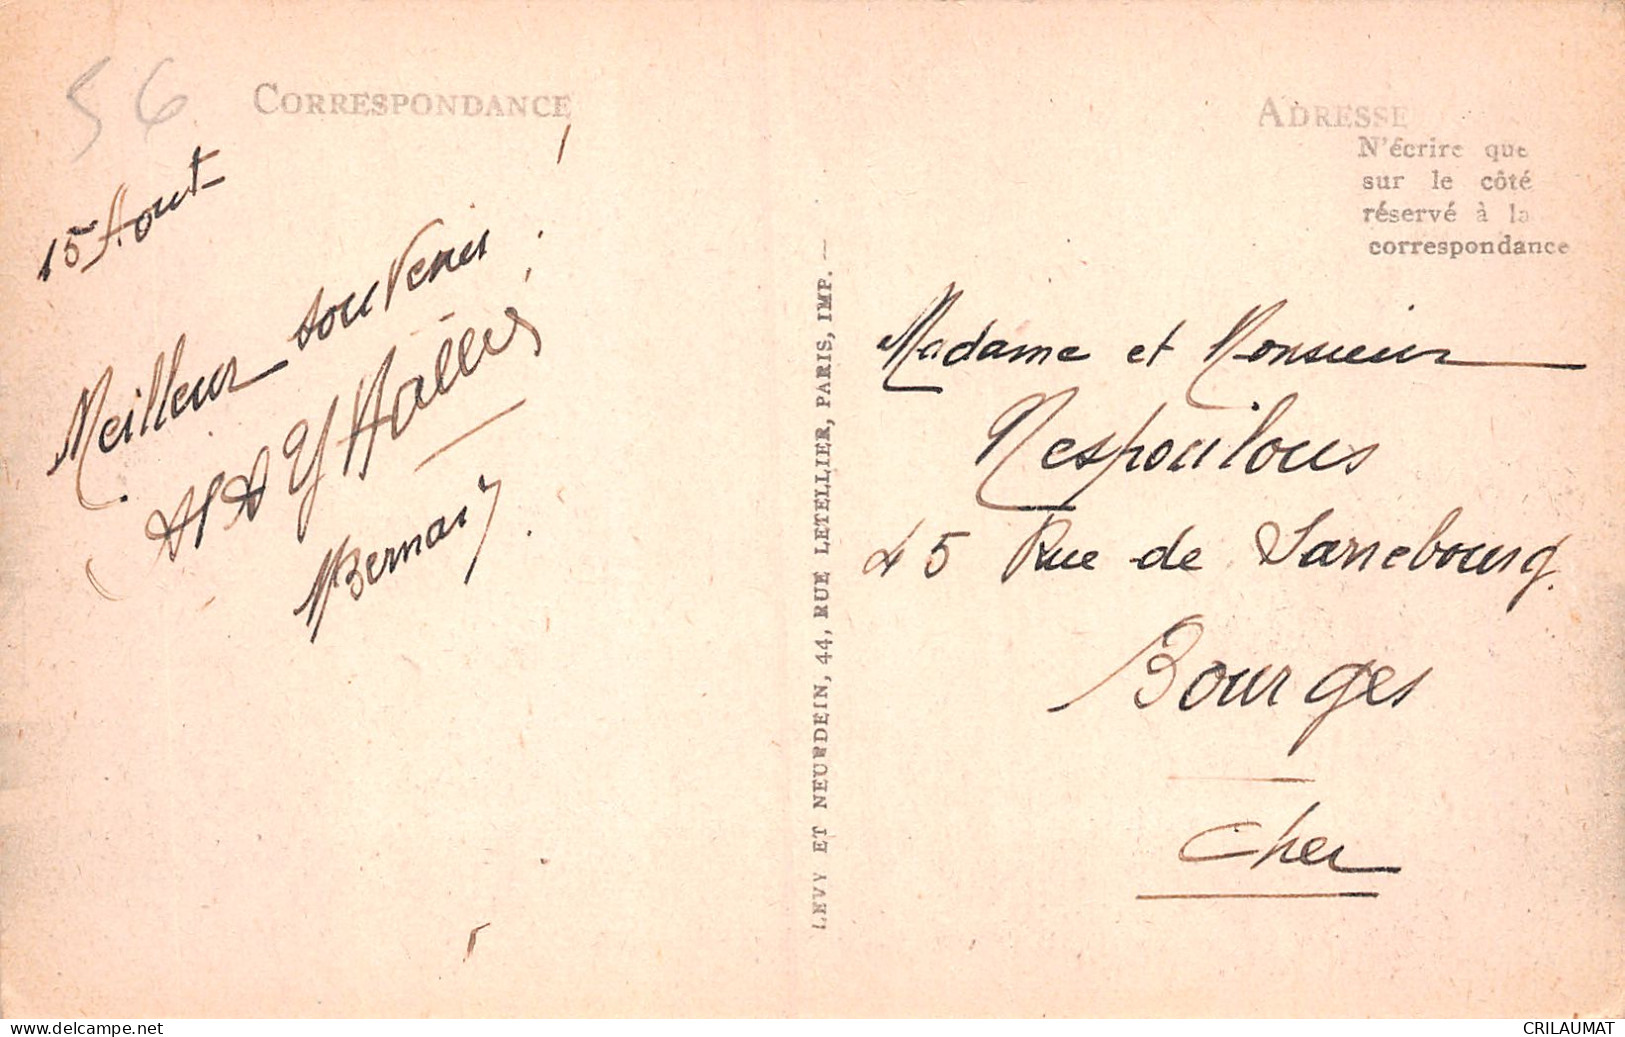 56
CORRESPONDANCE
15 Aout
Meilleur souvenir
Bernard
LEVY ET NEURDEIN, 44, RUE LETELLIER, PARIS, IMP. —
ADRESSE
N'écrire que
sur le côté
réservé à la
correspondance
Madame et Monsieur
Nespoulous
45 Rue de Sarrebourg.
Bourges
Cher
www.delcampe.net
CRILAUMAT